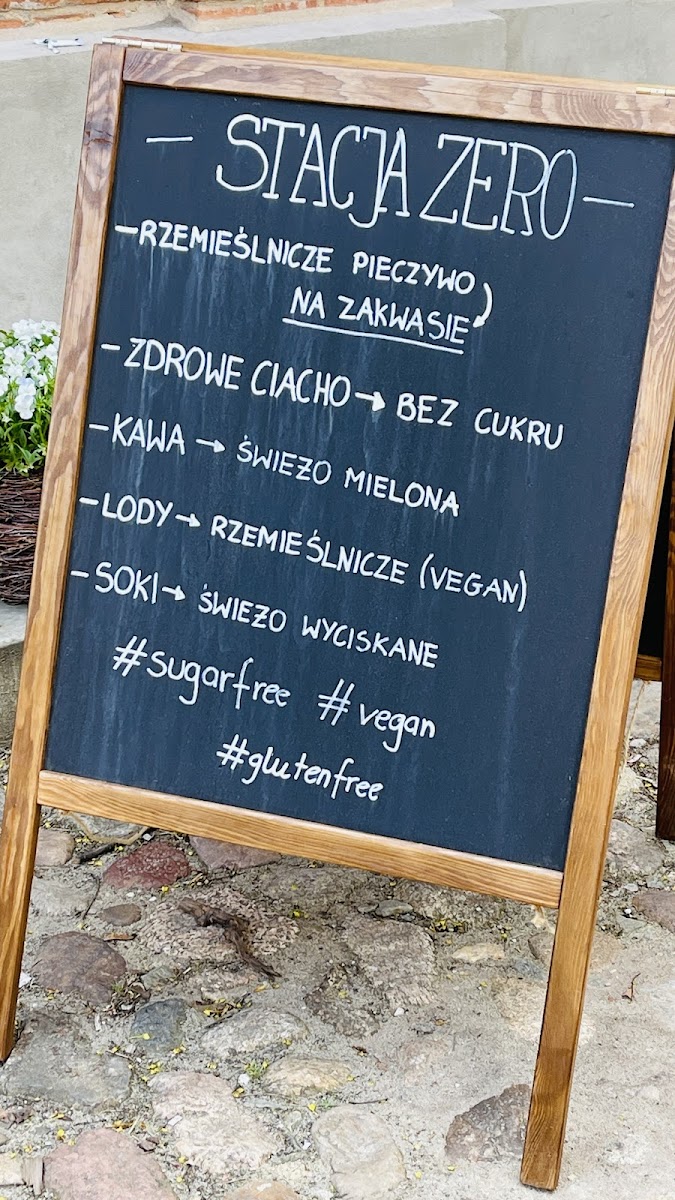 — STACJA ZERO —
– RZEMIEŚLNICZE PIECZYWO
NA ZAKWASIE
– ZDROWE CIACHO → BEZ CUKRU
– KAWA → ŚWIEŻO MIELONA
– LODY → RZEMIEŚLNICZE (VEGAN)
– SOKI → ŚWIEŻO WYCISKANE
#sugarfree #vegan
#glutenfree